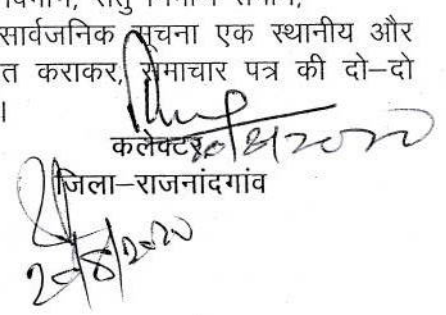 सार्वजनिक सूचना एक स्थानीय और
त कराकर, समाचार पत्र की दो–दो
।
कलेक्टर
जिला–राजनांदगांव
20/8/2020